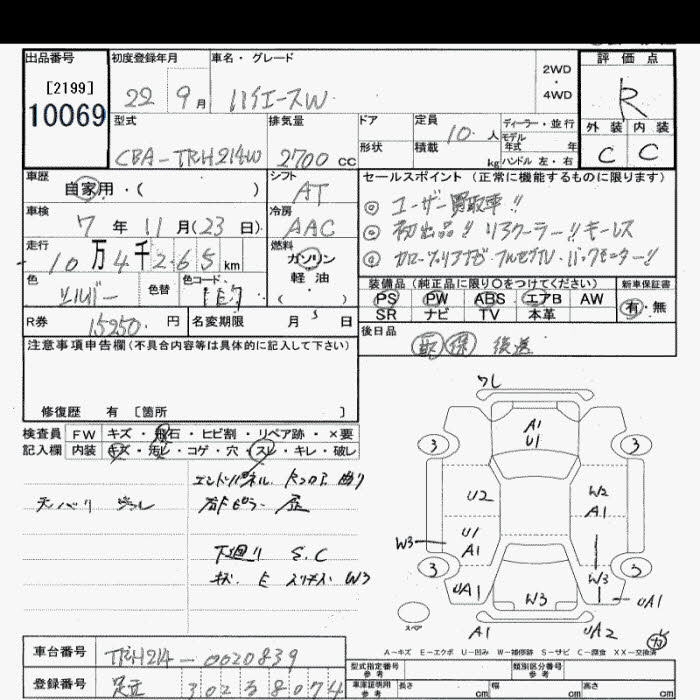 出品番号 初度登録年月 車名・グレード 評価点
[2199]
10069
22 9月 ハイエースW 2WD・4WD R
外装 内装
C C
型式 排気量 ドア 定員 ディーラー・並行
CBA-TRH214W 2700 cc 10人 モデル年式 年
形状 積載 kg ハンドル 左・右
車歴 シフト セールスポイント (正常に機能するものに限ります)
自家用・( ) AT ◎ ユーザー買取車!!
車検 冷房 ◎ 初出品!! リアクーラー!! キーレス
7年11月(23日) AAC
走行 燃料
10万4千265km ガソリン
軽油
( )
色 色替 色コード
シルバー 1E7
装備品 (純正品に限り○をつけてください) 新車保証書
PS PW ABS エアB AW 有・無
SR ナビ TV 本革
R券 15250円 名変期限 月 日
後日品
取 保 後送
注意事項申告欄(不具合内容等は具体的に記入して下さい)
修復歴 有 [箇所 ]
検査員 FW キズ・飛石・ヒビ割・リペア跡・×要
記入欄 内装 キズ・汚レ・コゲ・穴・スレ・キレ・破レ
エンドパネル
下廻り S.C
W3
ワレ
A1
U1
3 3
U2 W2
A1
U1
A1
W3
3 3
W3
UA1 W3 UA1
スペア
A1 UA2
A-キズ E-エクボ U-凹み W-補修跡 S-サビ C-腐食 XX-交換済
車台番号 TRH214-0020839
登録番号 足立 302 さ 8074
型式指定番号 参考 類別区分番号 参考
車庫証明用 参考 長さ cm 幅 cm 高さ cm